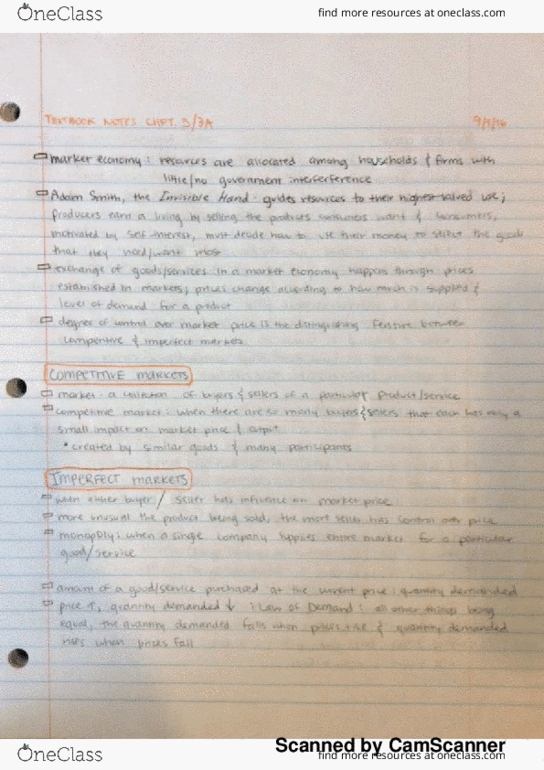 OneClass find more resources at oneclass.com
TEXTBOOK NOTES CHPT. 3/3A 9/1/16
market economy: resources are allocated among households & firms with
little/no government interference
Adam Smith, the Invisible Hand: guides resources to their highest-valued use;
producers earn a living by selling the products consumers want & consumers,
motivated by self-interest, must decide how to use their money to select the goods
that they need/want most
exchange of goods/services in a market economy happens through prices
established in markets; prices change according to how much is supplied &
level of demand for a product
degree of control over market price is the distinguishing feature between
competitive & imperfect markets
COMPETITIVE MARKETS
market: a collection of buyers & sellers of a particular product/service
competitive market: when there are so many buyers & sellers that each has only a
small impact on market price & output
created by similar goods & many participants
IMPERFECT MARKETS
when either buyer/seller has influence on market price
more unusual the product being sold, the more seller has control over price
monopoly: when a single company supplies entire market for a particular
good/service
amount of a good/service purchased at the current price: quantity demanded
price ↑, quantity demanded ↓ : Law of Demand: all other things being
equal, the quantity demanded falls when prices rise & quantity demanded
rises when prices fall
Scanned by CamScanner
OneClass find more resources at oneclass.com